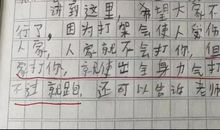 讲到这里，希望大家不
行了，因为打架气使人家你
人家，人家就不气打你，但
家打你，就使出全身力气打
不过就跑，还可以告诉老师